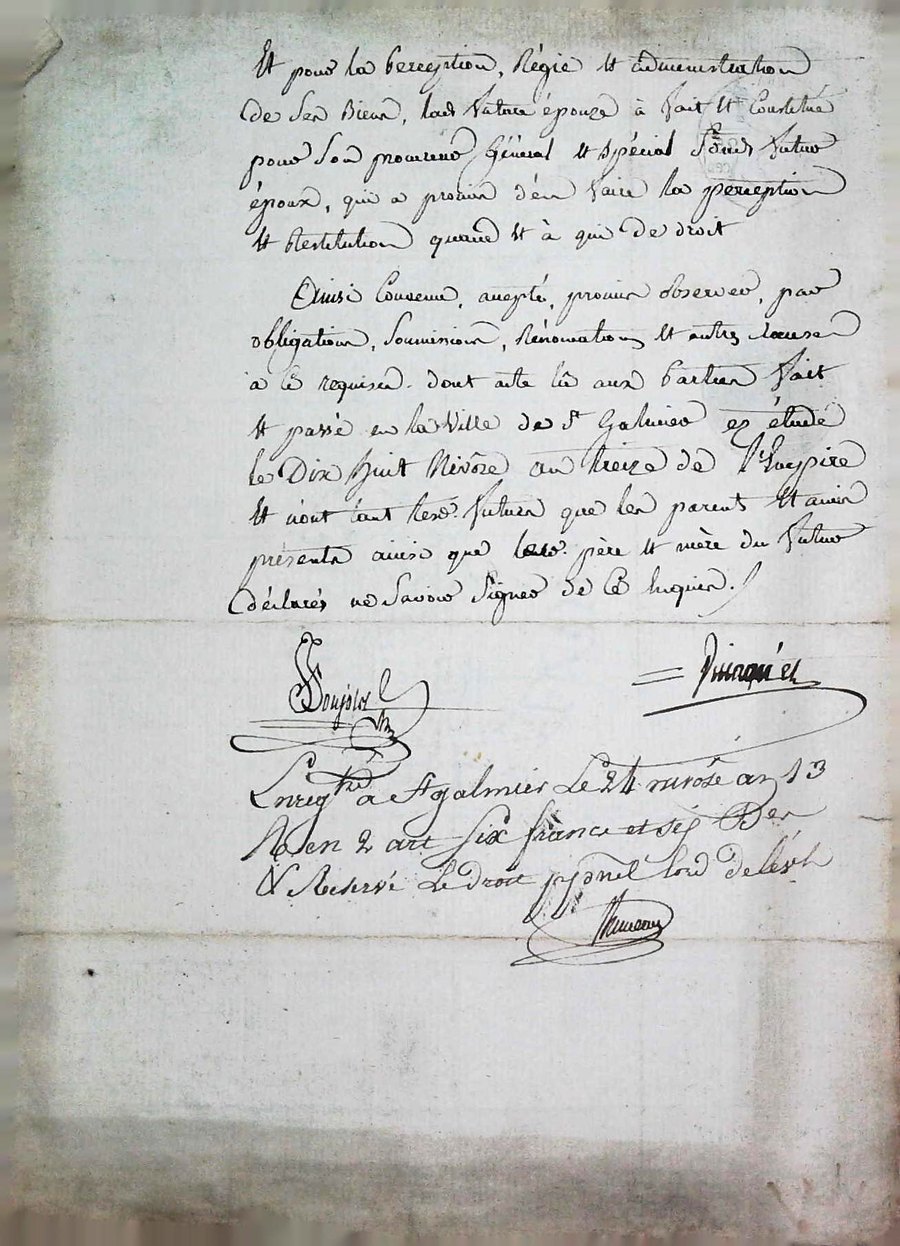 Et pour la perception, Régie et administration
de ses Biens, lad. future épouze à fait et Constitué
pour son procureur Général et spécial led. futur
époux, qui a promis d'en faire la perception
et Restitution quand et à qui de droit
Ainsi Convenu, accepté, promis observer, par
obligations, soumissions, Rénonciations et autres clauses
à ce requises. dont acte lû aux parties fait
et passé en la Ville de St Galmier ez étude
le Dix huit Nivôze an treize de l'Empire
et n'ont tant lesd. futurs que les parents et amis
présents ainsi que lesd. père et mère du futur
déclarés ne savoir signer de ce Enquis.
Enregtré à St galmier Le 24 nivôse an 13
en 2 art six francs et
& Reservé Le droit